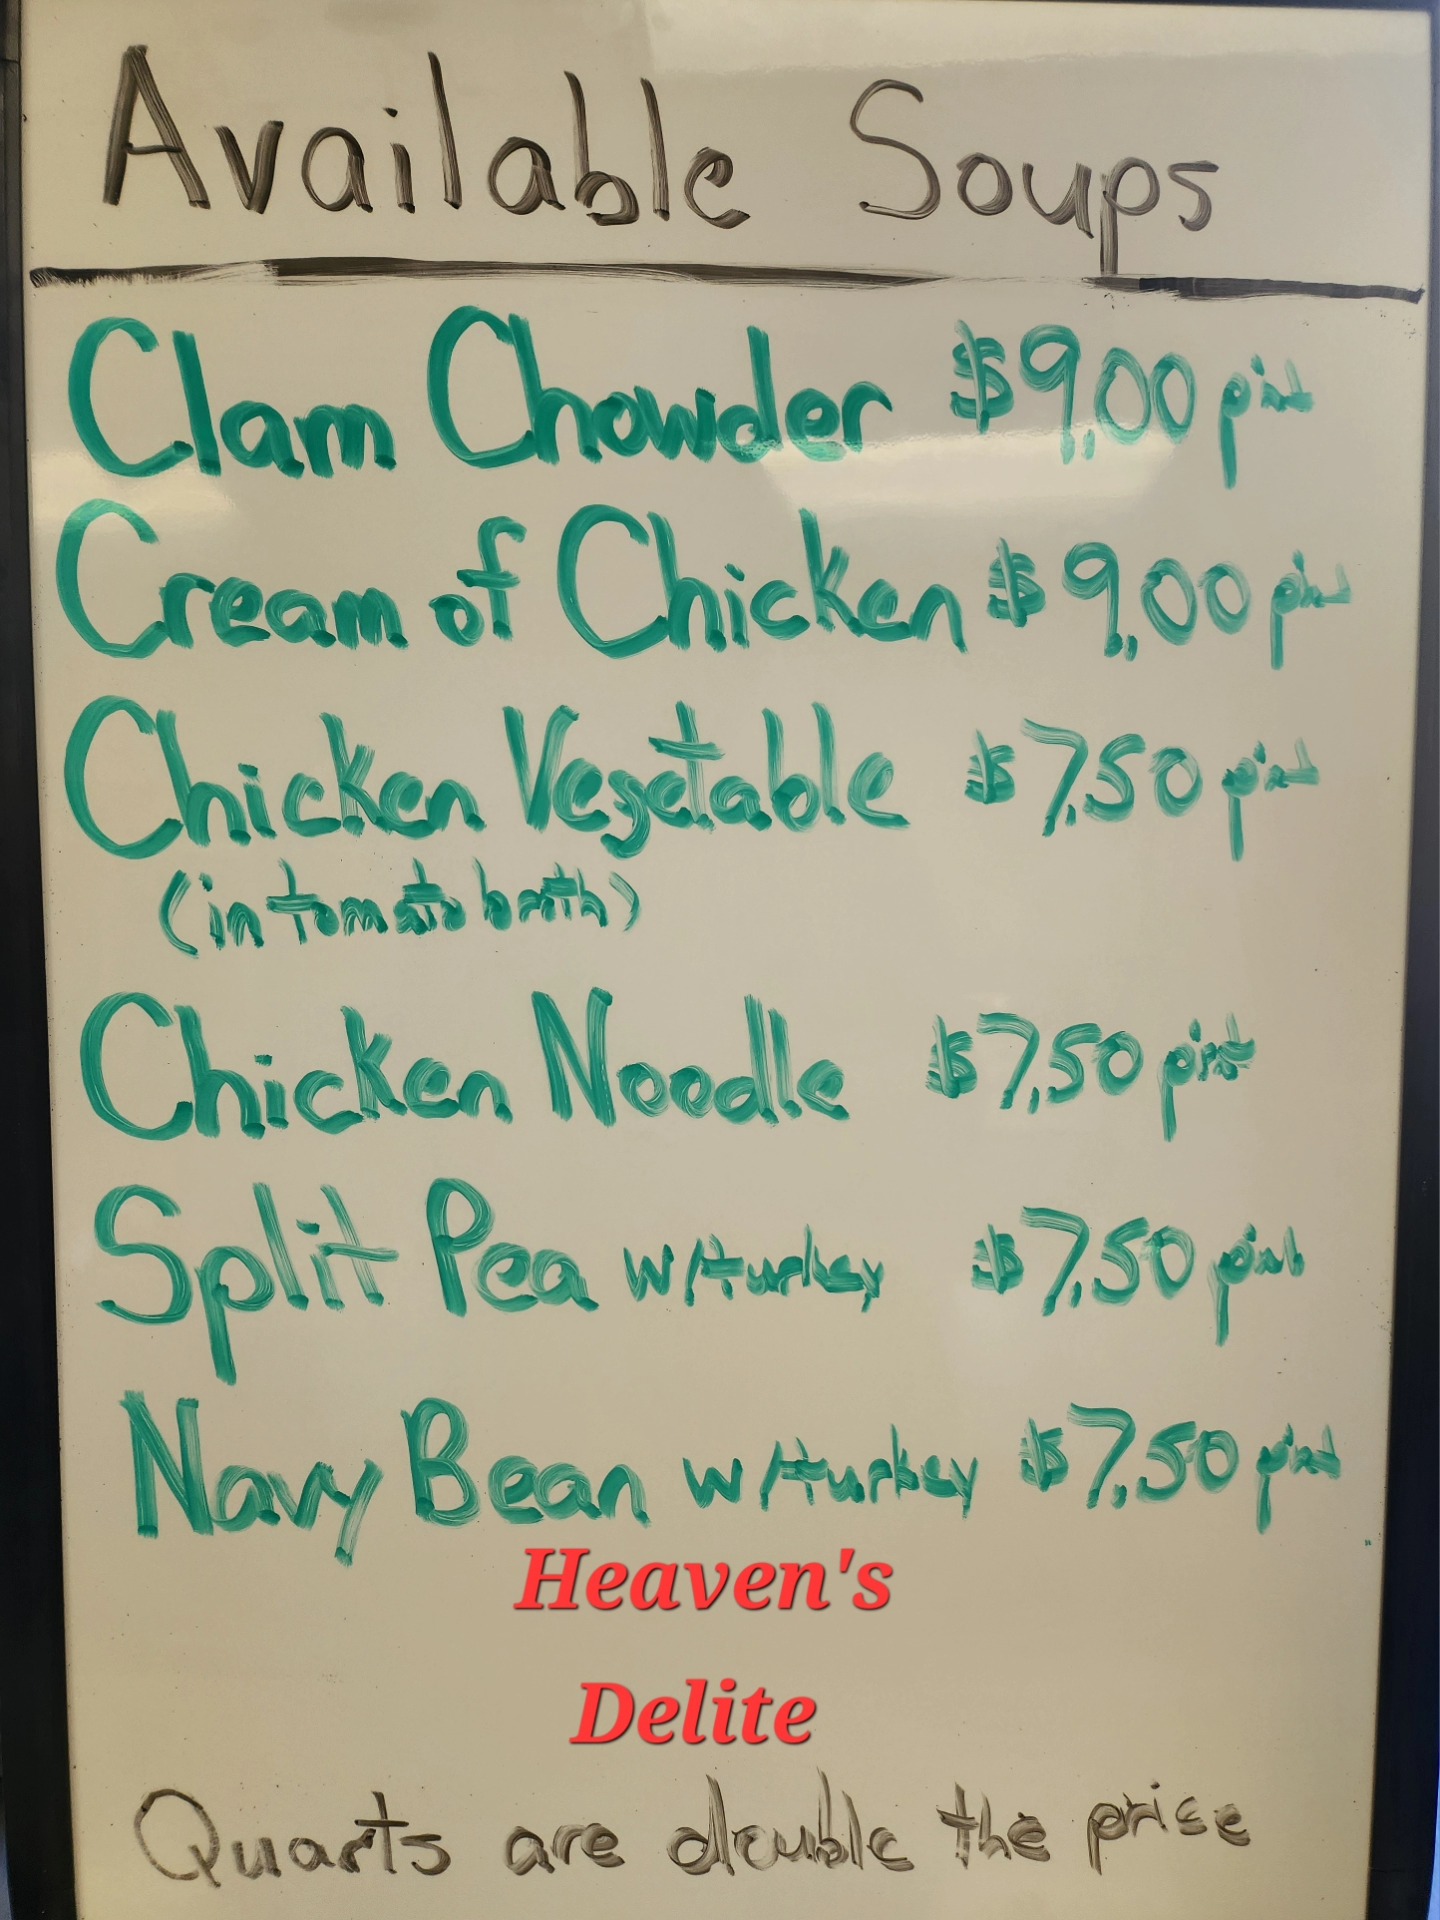 Available Soups
Clam Chowder $9.00 pint
Cream of Chicken $9.00 pint
Chicken Vegetable $7.50 pint
(in tomato broth)
Chicken Noodle $7.50 pint
Split Pea w/turkey $7.50 pint
Navy Bean w/turkey $7.50 pint
Heaven's
Delite
Quarts are double the price